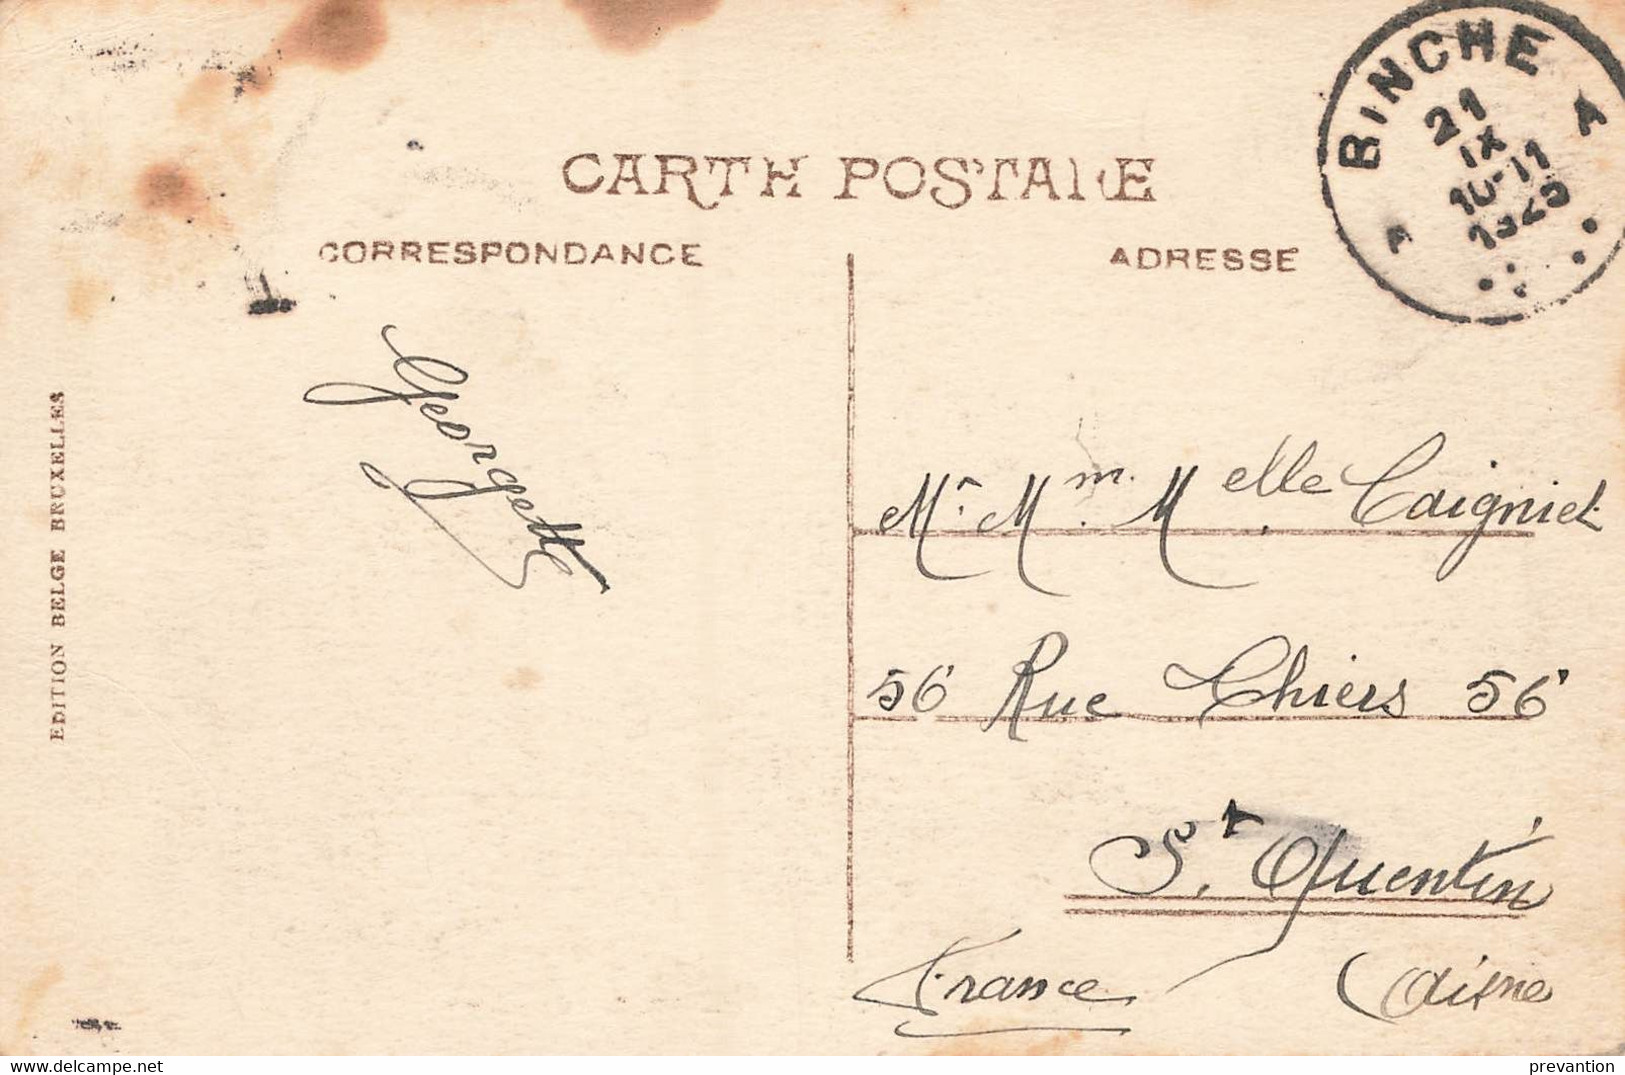 CARTE POSTALE
CORRESPONDANCE
ADRESSE
BINCHE
21
IX
10-11
1925
A A
EDITION BELGE BRUXELLES
Georgette
Mr. Mme. Melle. Caigniet
56 Rue Thiers 56
St. Quentin
France (Aisne
prevantion